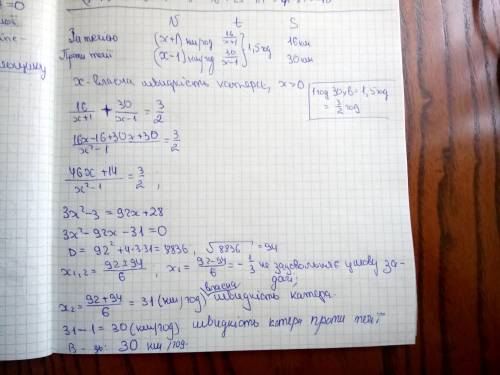 V t S
За течією (x+1) км/год 16/x+1 16 км
Проти течії (x-1) км/год 30/x-1 } 1,5 год 30 км
x - власна швидкість катера, x>0
1 год 30 хв = 1,5 год
= 3/2 год
16/x+1 + 30/x-1 = 3/2
16x-16+30x+30/x²-1 = 3/2
46x+14/x²-1 = 3/2 ;
3x²-3 = 92x+28
3x²-92x-31=0
D = 92²+4·3·31=8836, √8836 =94
x₁,₂ = 92±94/6 , x₁ = 92-94/6 = -1/3 не задовольняє умову за-
дачі,
x₂ = 92+94/6 = 31 (км/год) власна швидкість катера.
31-1 = 30 (км/год) швидкість катера проти течії
В-дь: 30 км/год.